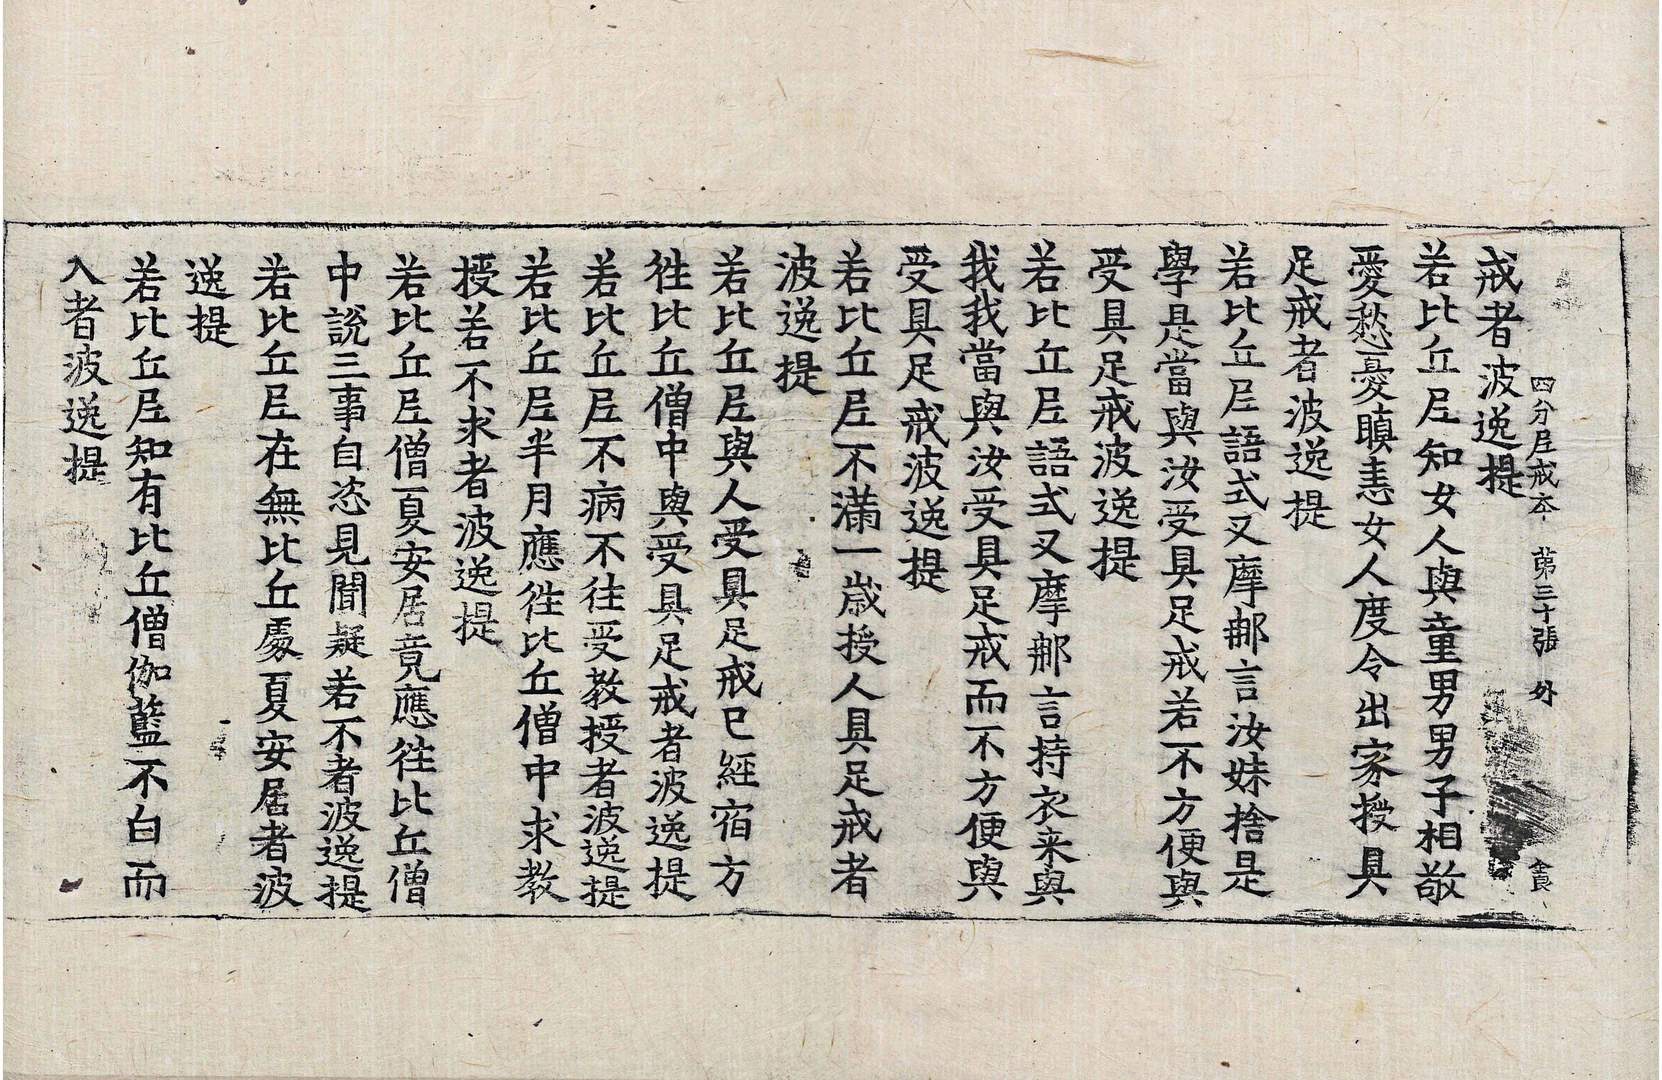 四分尼戒本 第三十張 外 食
戒者波逸提
若比丘尼知女人與童男男子相敬
愛愁憂瞋恚女人度令出家授具
足戒者波逸提
若比丘尼語式叉摩那言汝妹捨是
學是當與汝受具足戒若不方便與
受具足戒波逸提
若比丘尼語式叉摩那言持衣来與
我我當與汝受具足戒而不方便與
受具足戒波逸提
若比丘尼不滿一歳授人具足戒者
波逸提
若比丘尼與人受具足戒已經宿方
徃比丘僧中與受具足戒者波逸提
若比丘尼不病不往受教授者波逸提
若比丘尼半月應徃比丘僧中求教
授若不求者波逸提
若比丘尼僧夏安居竟應徃比丘僧
中說三事自恣見聞疑若不者波逸提
若比丘尼在無比丘處夏安居者波
逸提
若比丘尼知有比丘僧伽藍不白而
入者波逸提